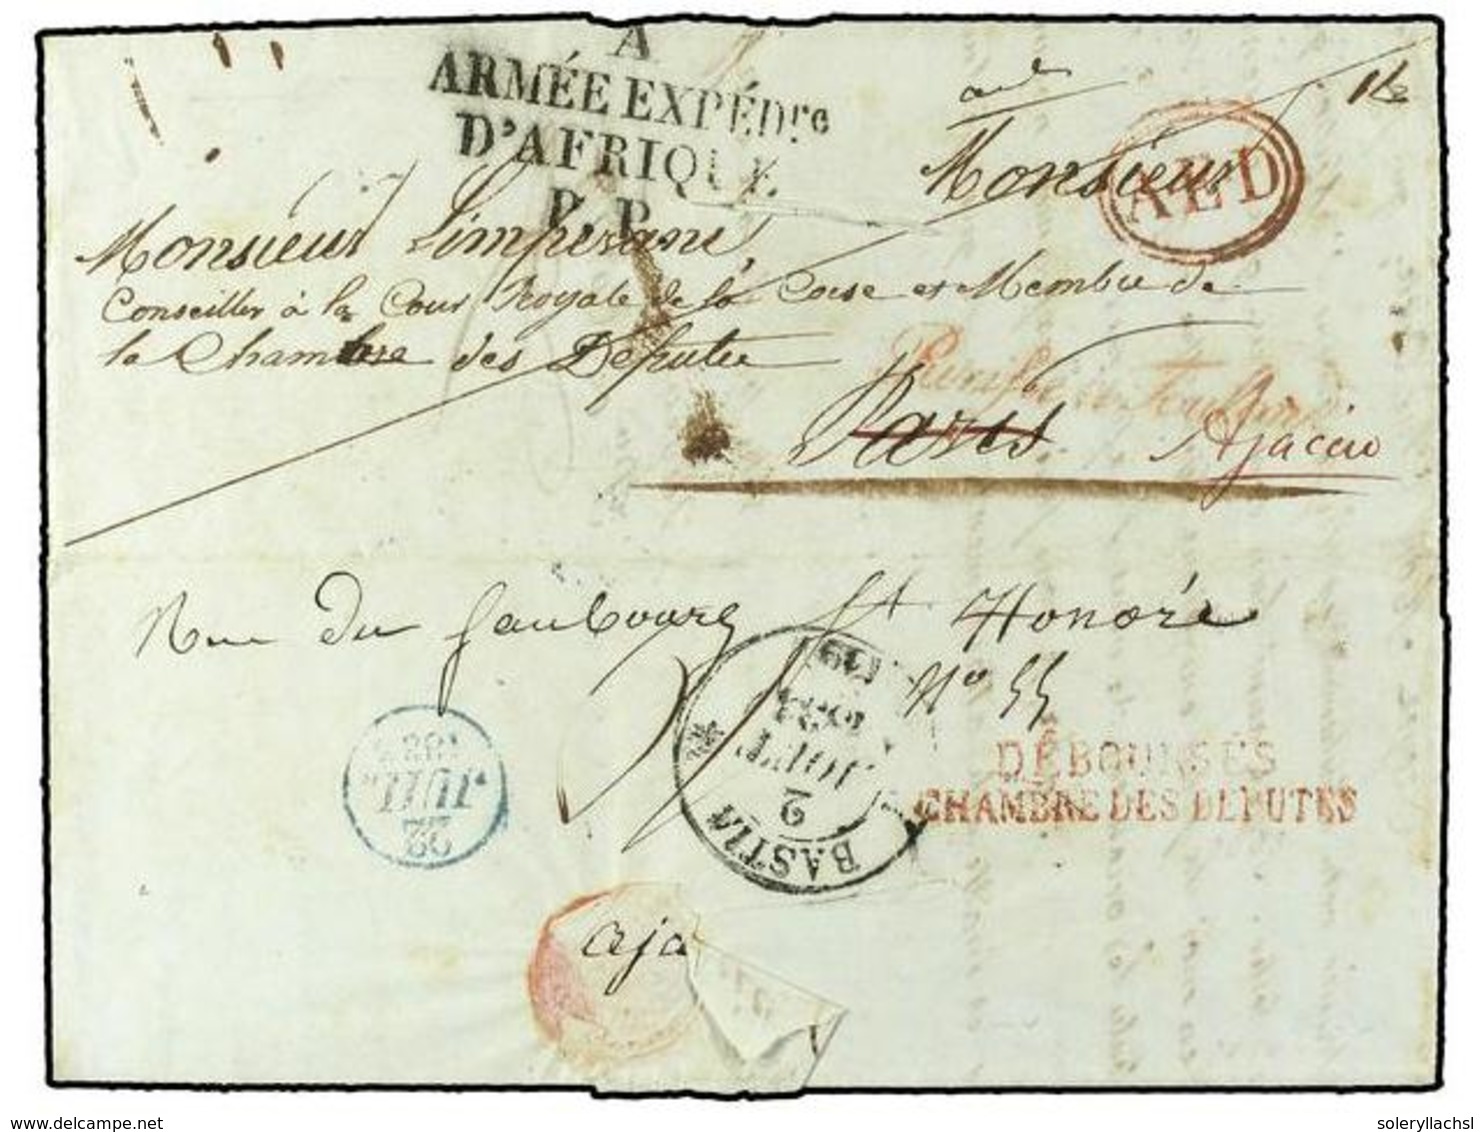 A
ARMÉE EXPÉDre
D'AFRIQUE
P.P.
Monsieur
AED
Monsieur Limperani,
Conseiller à la Cour Royale de la Corse et Membre de
la Chambre des Députés
Paris Ajaccio
Rue du faubourg St Honoré
No 55
22
JUIL
2
JUIL
BASTIA
DÉBOURSÉS
CHAMBRE DES DEPUTES
aja
delcampe.net
soleryllachsl